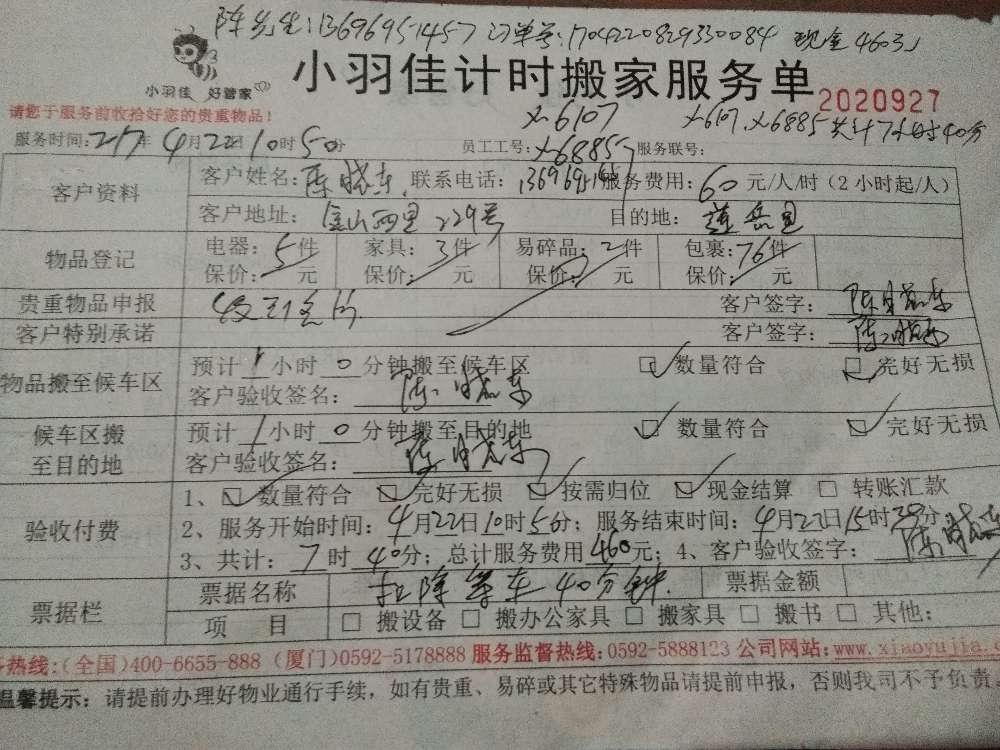 陈先生:13696951457 订单号:1704220829330084 现金460元
小羽佳 好管家
小羽佳计时搬家服务单 2020927
请您于服务前收拾好您的贵重物品!
X-6107 X-6107, X-6885 共计7小时40分
服务时间:2017年4月22日10时50分 员工工号:X-6885 服务联号:
客户资料 客户姓名:陈 联系电话:13696951457 服务费用:60元/人/时(2小时起/人)
客户地址:金山西里229号 目的地:莲岳里
物品登记 电器:5件 家具:3件 易碎品:2件 包裹:76件
保价: 元 保价: 元 保价: 元 保价: 元
贵重物品申报 客户签字:陈
客户特别承诺 客户签字:陈
物品搬至候车区 预计1小时0分钟搬至候车区 ☑数量符合 ☑完好无损
客户验收签名:陈
候车区搬至目的地 预计1小时0分钟搬至目的地 ☑数量符合 ☑完好无损
客户验收签名:陈
验收付费 1、☑数量符合 ☑完好无损 ☑按需归位 ☑现金结算 □转账汇款
2、服务开始时间:4月22日10时56分;服务结束时间:4月22日15时 分
3、共计:7时40分;总计服务费用460元;4、客户验收签字:陈
票据栏 票据名称 扣除等车40分钟. 票据金额
项 目 □搬设备 □搬办公家具 □搬家具 □搬书 □其他:
热线:(全国)400-6655-888 (厦门)0592-5178888 服务监督热线:0592-5888123 公司网站:www.xiaoyujia.c
温馨提示:请提前办理好物业通行手续,如有贵重、易碎或其它特殊物品请提前申报,否则我司不予负责。